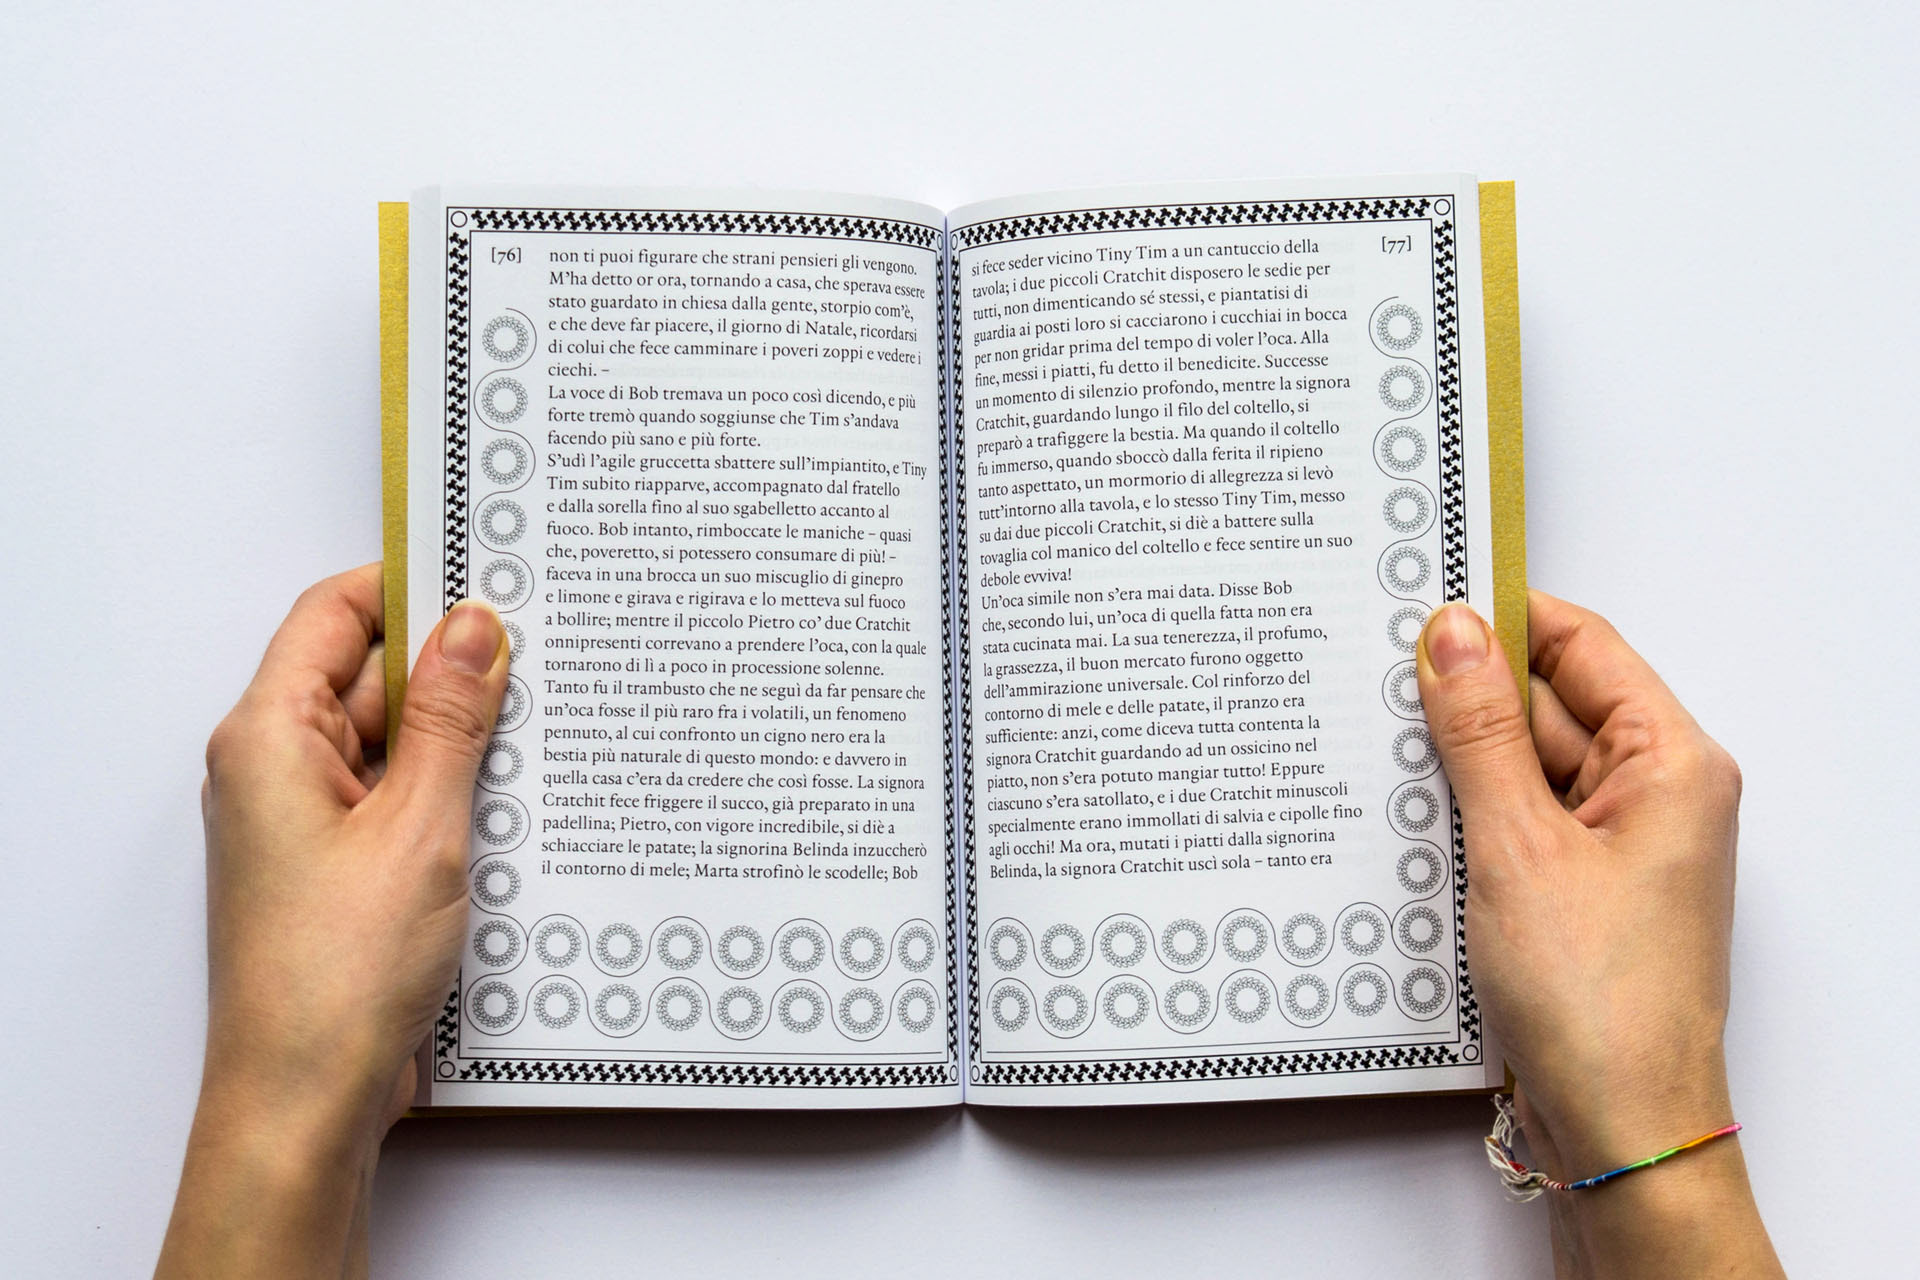 [76]
non ti puoi figurare che strani pensieri gli vengono.
M'ha detto or ora, tornando a casa, che sperava essere
stato guardato in chiesa dalla gente, storpio com'è,
e che deve far piacere, il giorno di Natale, ricordarsi
di colui che fece camminare i poveri zoppi e vedere i
ciechi. –
La voce di Bob tremava un poco così dicendo, e più
forte tremò quando soggiunse che Tim s'andava
facendo più sano e più forte.
S'udì l'agile gruccetta sbattere sull'impiantito, e Tiny
Tim subito riapparve, accompagnato dal fratello
e dalla sorella fino al suo sgabelletto accanto al
fuoco. Bob intanto, rimboccate le maniche – quasi
che, poveretto, si potessero consumare di più! –
faceva in una brocca un suo miscuglio di ginepro
e limone e girava e rigirava e lo metteva sul fuoco
a bollire; mentre il piccolo Pietro co' due Cratchit
onnipresenti correvano a prendere l'oca, con la quale
tornarono di lì a poco in processione solenne.
Tanto fu il trambusto che ne seguì da far pensare che
un'oca fosse il più raro fra i volatili, un fenomeno
pennuto, al cui confronto un cigno nero era la
bestia più naturale di questo mondo: e davvero in
quella casa c'era da credere che così fosse. La signora
Cratchit fece friggere il succo, già preparato in una
padellina; Pietro, con vigore incredibile, si diè a
schiacciare le patate; la signorina Belinda inzuccherò
il contorno di mele; Marta strofinò le scodelle; Bob
[77]
si fece seder vicino Tiny Tim a un cantuccio della
tavola; i due piccoli Cratchit disposero le sedie per
tutti, non dimenticando sé stessi, e piantatisi di
guardia ai posti loro si cacciarono i cucchiai in bocca
per non gridar prima del tempo di voler l'oca. Alla
fine, messi i piatti, fu detto il benedicite. Successe
un momento di silenzio profondo, mentre la signora
Cratchit, guardando lungo il filo del coltello, si
preparò a trafiggere la bestia. Ma quando il coltello
fu immerso, quando sboccò dalla ferita il ripieno
tanto aspettato, un mormorio di allegrezza si levò
tutt'intorno alla tavola, e lo stesso Tiny Tim, messo
su dai due piccoli Cratchit, si diè a battere sulla
tovaglia col manico del coltello e fece sentire un suo
debole evviva!
Un'oca simile non s'era mai data. Disse Bob
che, secondo lui, un'oca di quella fatta non era
stata cucinata mai. La sua tenerezza, il profumo,
la grassezza, il buon mercato furono oggetto
dell'ammirazione universale. Col rinforzo del
contorno di mele e delle patate, il pranzo era
sufficiente: anzi, come diceva tutta contenta la
signora Cratchit guardando ad un ossicino nel
piatto, non s'era potuto mangiar tutto! Eppure
ciascuno s'era satollato, e i due Cratchit minuscoli
specialmente erano immollati di salvia e cipolle fino
agli occhi! Ma ora, mutati i piatti dalla signorina
Belinda, la signora Cratchit uscì sola – tanto era